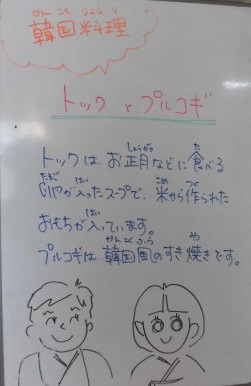 かんこくりょうり
韓国料理
トックとプルコギ
しょうがつ た
トックは、お正月などに食べる
たまご はい こめ つく
が入ったスープで、米から作られた
はい
おもちが入っています。
かんこくふう や
プルコギは韓国風のすき焼きです。